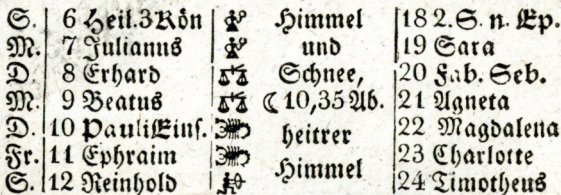 S. 6 Heil.3Kön Himmel 18 2.S. n. Ep.
M. 7 Julianus und 19 Sara
D. 8 Erhard Schnee, 20 Fab. Seb.
M. 9 Beatus ☾10,35 Ab. 21 Agneta
D. 10 PauliEins. heitrer 22 Magdalena
Fr. 11 Ephraim Himmel 23 Charlotte
S. 12 Reinhold 24 Timotheus